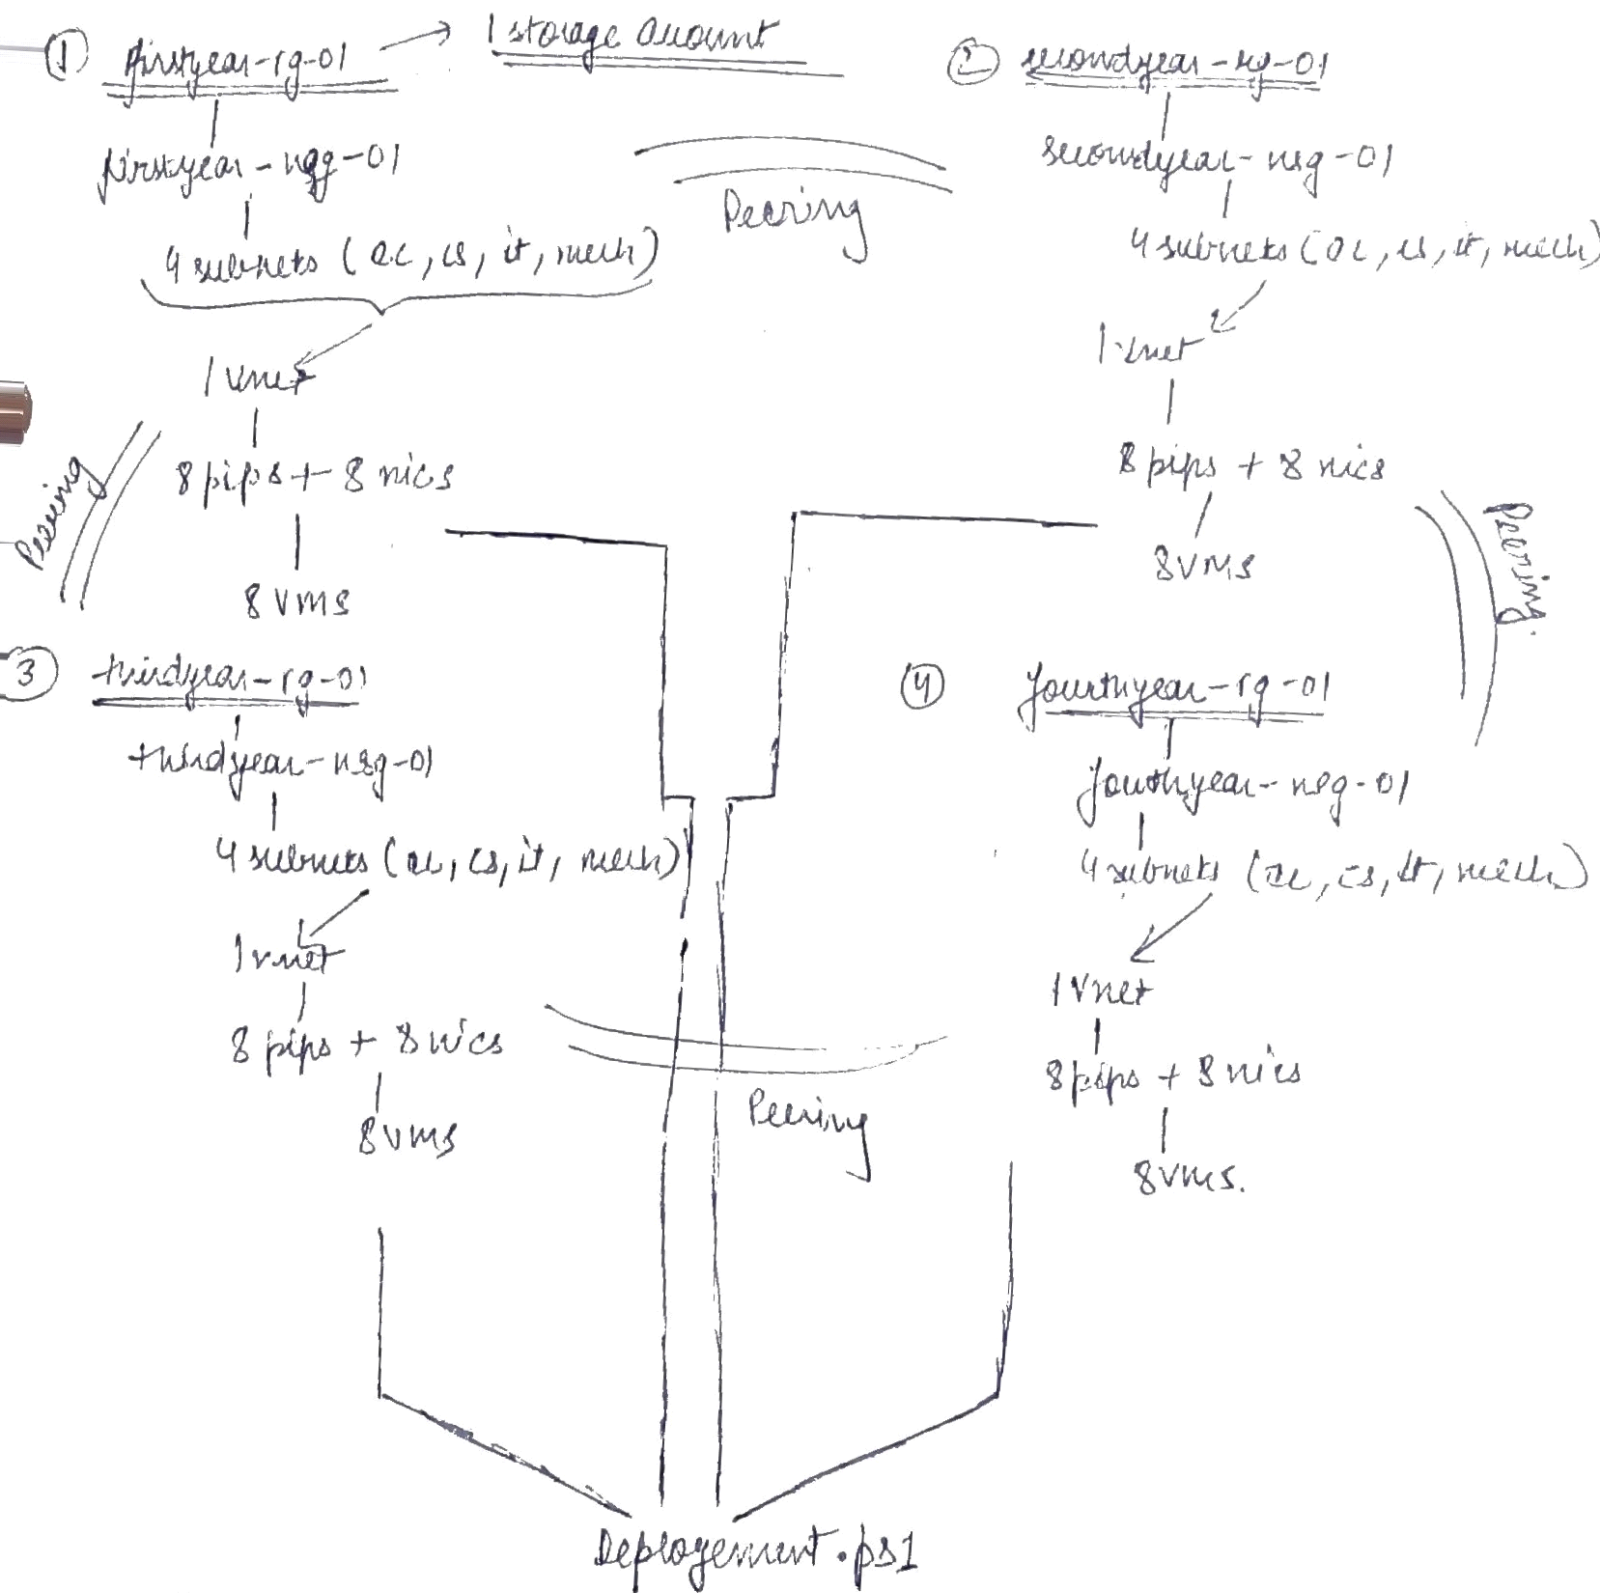 ① firstyear-rg-01 → 1 storage account
firstyear-nsg-01
4 subnets (ec, cs, it, mech)
1 vnet
8 pips + 8 nics
8 vms
Peering
② secondyear-rg-01
secondyear-nsg-01
4 subnets (ec, cs, it, mech)
1 vnet
8 pips + 8 nics
8 vms
Peering
Peering.
③ thirdyear-rg-01
thirdyear-nsg-01
4 subnets (ec, cs, it, mech)
1 vnet
8 pips + 8 nics
8 vms
④ fourthyear-rg-01
fourthyear-nsg-01
4 subnets (ec, cs, it, mech)
1 vnet
8 pips + 8 nics
8 vms.
Peering
Deployement.ps1